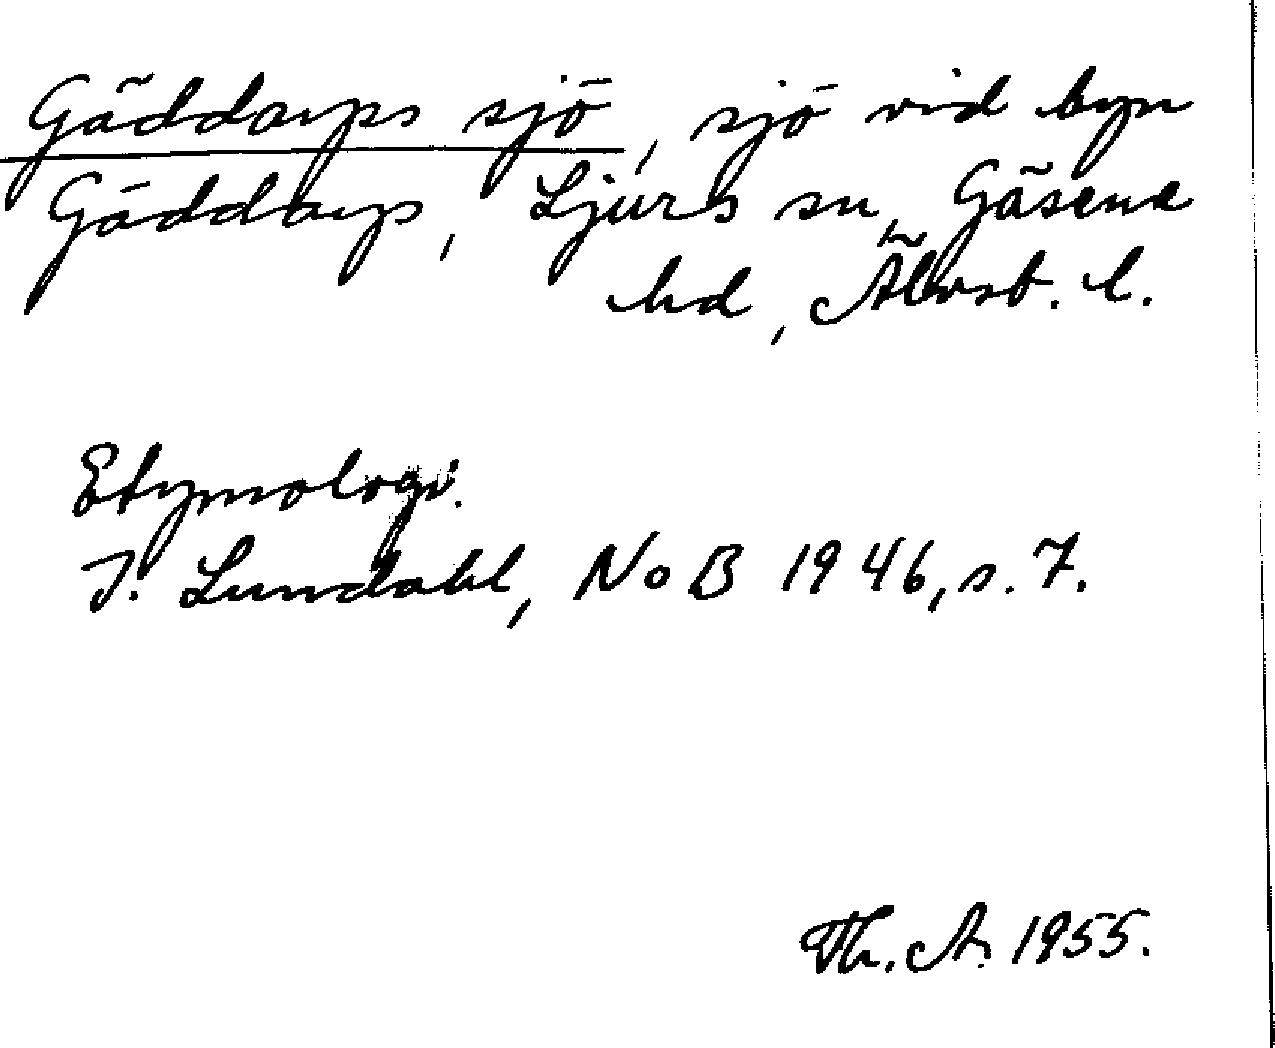 Gäddarps sjö, sjö vid byn
Gäddarp, Ljurs sn, Gäsene
hd, Älvsb. l.
Etymologi.
I. Lundahl, NoB 1946, s. 7.
Th. A. 1955.